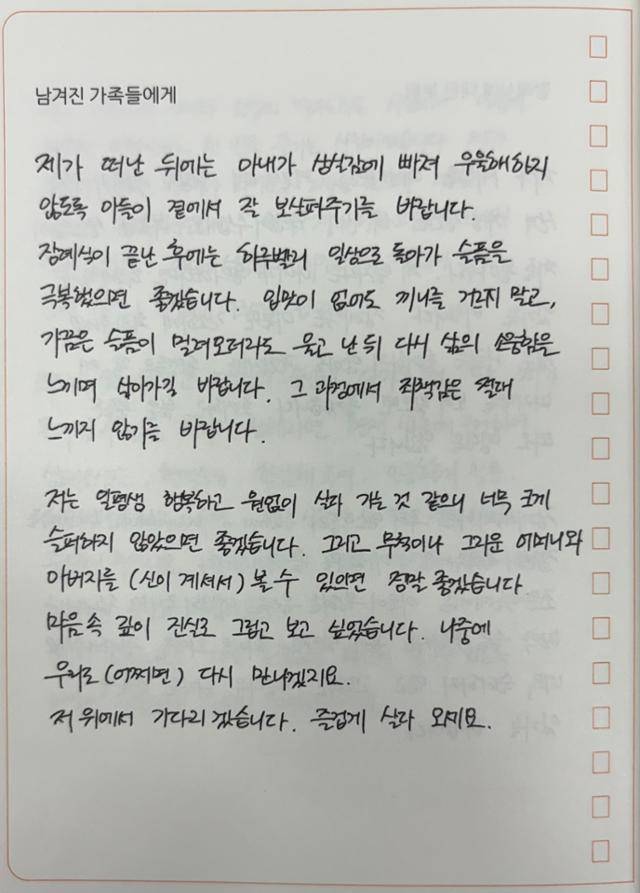 남겨진 가족들에게
제가 떠난 뒤에는 아내가 상실감에 빠져 우울해하지
않도록 아들이 곁에서 잘 보살펴주기를 바랍니다.
장례식이 끝난 후에는 하루빨리 일상으로 돌아가 슬픔을
극복했으면 좋겠습니다. 입맛이 없어도 끼니를 거르지 말고,
가끔은 슬픔이 밀려오더라도 울고 난 뒤 다시 삶의 소중함을
느끼며 살아가길 바랍니다. 그 과정에서 죄책감은 절대
느끼지 않기를 바랍니다.
저는 일평생 행복하고 원없이 살다 가는 것 같으니 너무 크게
슬퍼하지 않았으면 좋겠습니다. 그리고 무척이나 그리운 어머니와
아버지를 (신이 계셔서) 볼 수 있으면 정말 좋겠습니다
마음 속 깊이 진실로 그립고 보고 싶었습니다. 나중에
우리도 (어쩌면) 다시 만나겠지요.
저 위에서 기다리겠습니다. 즐겁게 살다 오세요.